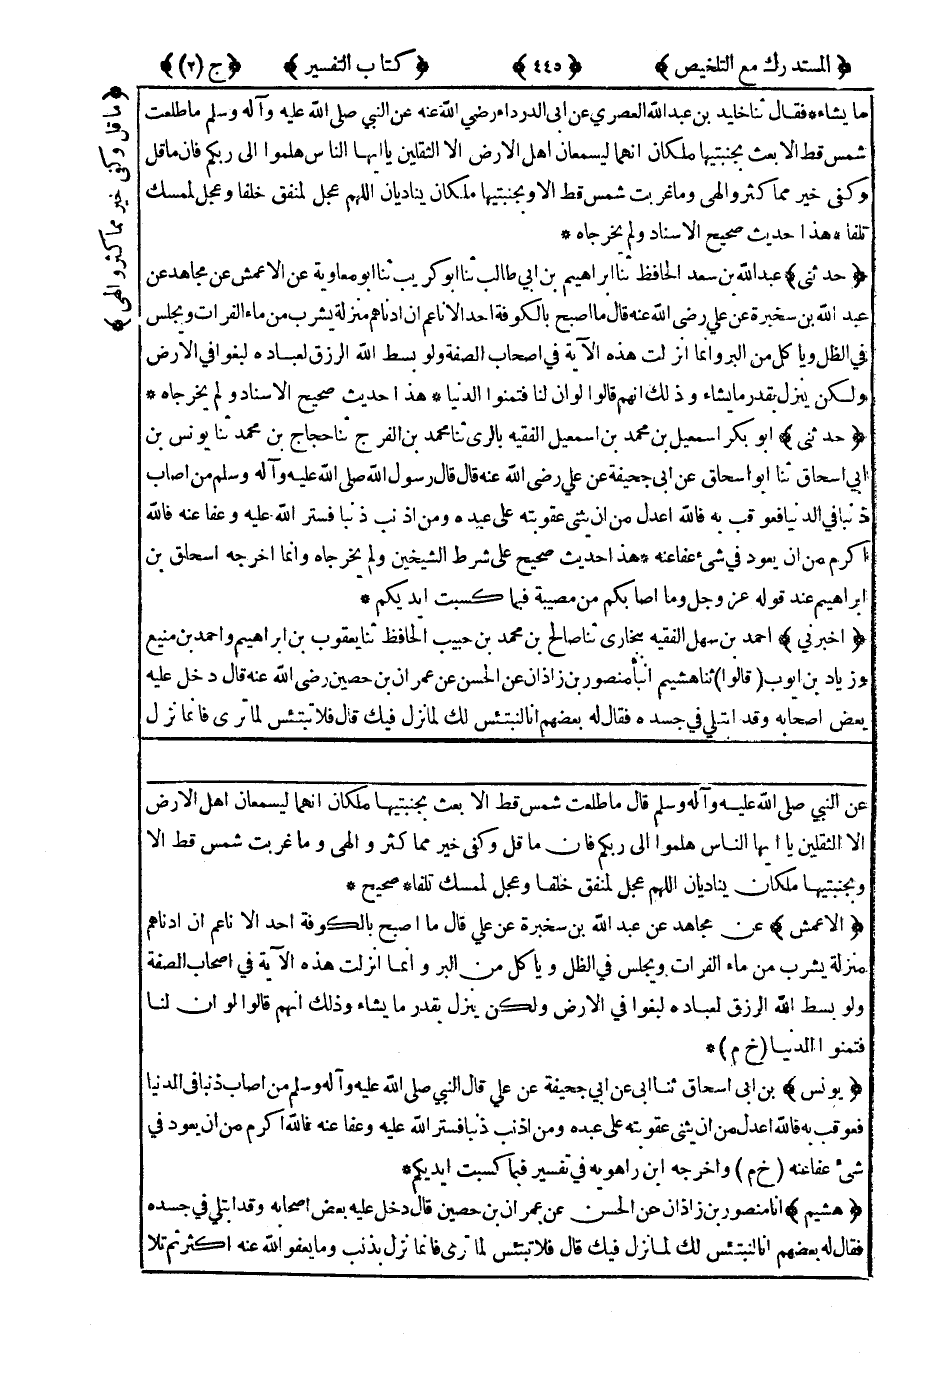 ﴿ المستدرك مع التلخيص ﴾ ﴿ ٤٤٥ ﴾ ﴿ كتاب التفسير ﴾ ﴿ ج (٢) ﴾
ما يشاء * فقال ثنا خليد بن عبد الله العصري عن ابى الدرداء رضي الله عنه عن النبي صلى الله عليه وآله وسلم ما طلعت
شمس قط الا بعث بجنبتيها ملكان انهما ليسمعان اهل الارض الا الثقلين يا ايها الناس هلموا الى ربكم فان ما قل
وكفى خير مما كثر والهى وما غربت شمس قط الا وبجنبتيها ملكان يناديان اللهم عجل لمنفق خلفا وعجل لممسك
تلفا * هذا حديث صحيح الاسناد ولم يخرجاه *
﴿ حدثنى ﴾ عبد الله بن سعد الحافظ ثنا ابراهيم بن ابي طالب ثنا ابو كريب ثنا ابو معاوية عن الاعمش عن مجاهد عن
عبد الله بن سخبرة عن علي رضى الله عنه قال ما اصبح بالكوفة احد الا ناعم ان ادناهم منزلة يشرب من ماء الفرات ويجلس
في الظل وياكل من البر وانما انزلت هذه الآية في اصحاب الصفة ولو بسط الله الرزق لعباده لبغوا في الارض
ولكن ينزل بقدر ما يشاء وذلك انهم قالوا لو ان لنا فتمنوا الدنيا * هذا حديث صحيح الاسناد ولم يخرجاه *
﴿ حدثنى ﴾ ابو بكر اسمعيل بن محمد بن اسمعيل الفقيه بالرى ثنا محمد بن الفرج ثنا حجاج بن محمد ثنا يونس بن
ابي اسحاق ثنا ابو اسحاق عن ابى جحيفة عن علي رضى الله عنه قال قال رسول الله صلى الله عليه وآله وسلم من اصاب
ذنبا في الدنيا فعوقب به فالله اعدل من ان يثنى عقوبته على عبده ومن اذنب ذنبا فستر الله عليه وعفا عنه فالله
اكرم من ان يعود في شئ عفا عنه * هذا حديث صحيح على شرط الشيخين ولم يخرجاه وانما اخرجه اسحاق بن
ابراهيم عند قوله عز وجل وما اصابكم من مصيبة فبما كسبت ايديكم *
﴿ اخبرني ﴾ احمد بن سهل الفقيه ببخارى ثنا صالح بن محمد بن حبيب الحافظ ثنا يعقوب بن ابراهيم واحمد بن منيع
وزياد بن ايوب (قالوا) ثنا هشيم انبأ منصور بن زاذان عن الحسن عن عمران بن حصين رضى الله عنه قال دخل عليه
بعض اصحابه وقد ابتلي في جسده فقال له بعضهم انا لنبتئس لك لما نزل فيك قال فلا تبتئس لما ترى فانما نزل
عن النبي صلى الله عليه وآله وسلم قال ما طلعت شمس قط الا بعث بجنبتيها ملكان انهما ليسمعان اهل الارض
الا الثقلين يا ايها الناس هلموا الى ربكم فان ما قل وكفى خير مما كثر والهى وما غربت شمس قط الا
وبجنبتيها ملكان يناديان اللهم عجل لمنفق خلفا وعجل لممسك تلفا * صحيح *
﴿ الاعمش ﴾ عن مجاهد عن عبد الله بن سخبرة عن علي قال ما اصبح بالكوفة احد الا ناعم ان ادناهم
منزلة يشرب من ماء الفرات ويجلس في الظل وياكل من البر وانما انزلت هذه الآية في اصحاب الصفة
ولو بسط الله الرزق لعباده لبغوا في الارض ولكن ينزل بقدر ما يشاء وذلك انهم قالوا لو ان لنا
فتمنوا الدنيا (خ م) *
﴿ يونس ﴾ بن ابى اسحاق ثنا ابى عن ابي جحيفة عن علي قال النبي صلى الله عليه وآله وسلم من اصاب ذنبا فى الدنيا
فعوقب به فالله اعدل من ان يثنى عقوبته على عبده ومن اذنب ذنبا فستر الله عليه وعفا عنه فالله اكرم من ان يعود في
شئ عفا عنه (خ م) واخرجه ابن راهويه في تفسير فبما كسبت ايديكم *
﴿ هشيم ﴾ انا منصور بن زاذان عن الحسن عن عمران بن حصين قال دخل عليه بعض اصحابه وقد ابتلي في جسده
فقال له بعضهم انا لنبتئس لك لما نزل فيك قال فلا تبتئس لما ترى فانما نزل بذنب وما يعفو الله عنه اكثر ثم تلا
﴿ ما قل وكفى خير مما كثر والهى ﴾